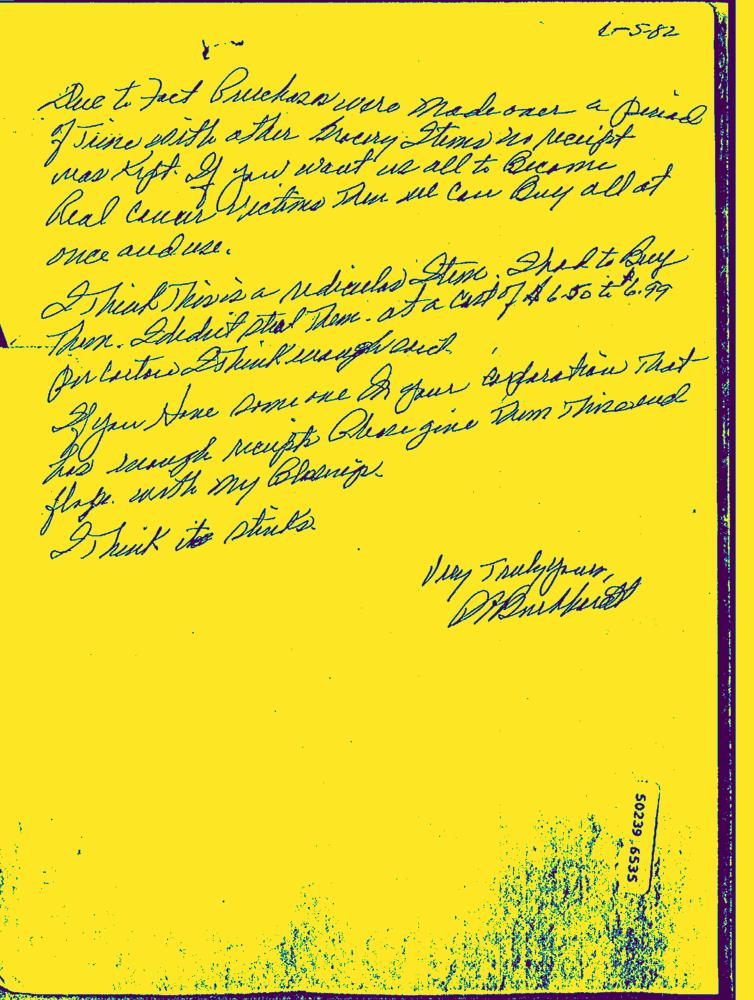 6-5-82
Due to Fact Purchases were made over a Period
of Time with other Grocery Items no receipt
was Kept. If you want us all to Become
Real Cancer Victims Then we can Buy all at
once and use.
I Think This is a rediculas Item. I had to Buy
Them. I didn't steal Them. at a cost of $6.50 to $6.99
Per Carton I Think enough said
If you Have someone In your corporation That
has enough receipts Please give Them This end
flaps. with my Blessings.
I Think it stinks.
Very Truly yours,
50239 6535